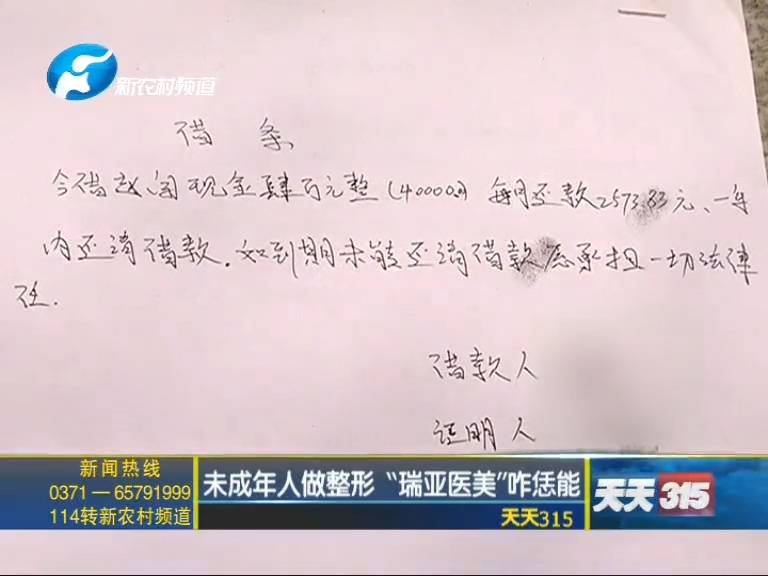 新农村频道
借条
今借赵闯现金肆万元整(40000元)每月还款2573.33元、一年
内还清借款。如到期未能还清借款愿承担一切法律
任.
借款人
证明人
新闻热线
0371—65791999
114转新农村频道
未成年人做整形 “瑞亚医美”咋恁能
天天315
天天315